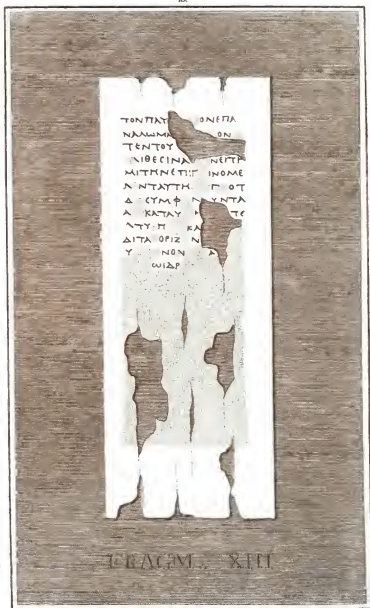 ΤΟΝΠΑΥ ΟΝΕΠΑ
ΝΑΛΩΜΑ ΟΝ
ΤΕΝΤΟΥ
ΛΙΘΕΣΙΝΑ ΝΕΙΤΡ
ΜΙΤΗΝΕΤΙ ΙΝΟΜΕ
ΝΤΑΥΤΗ Π ΟΤ
Δ ΣΥΜΦ ΥΝΤΑ
Α ΚΑΤΑΥ ΤΕ
ΛΤΥ Π ΚΑ
ΔΙΤΑ ΟΡΙΖ Ν
Υ ΝΟΝ Α
ΩΙΔΡ
FRAGM. XIII